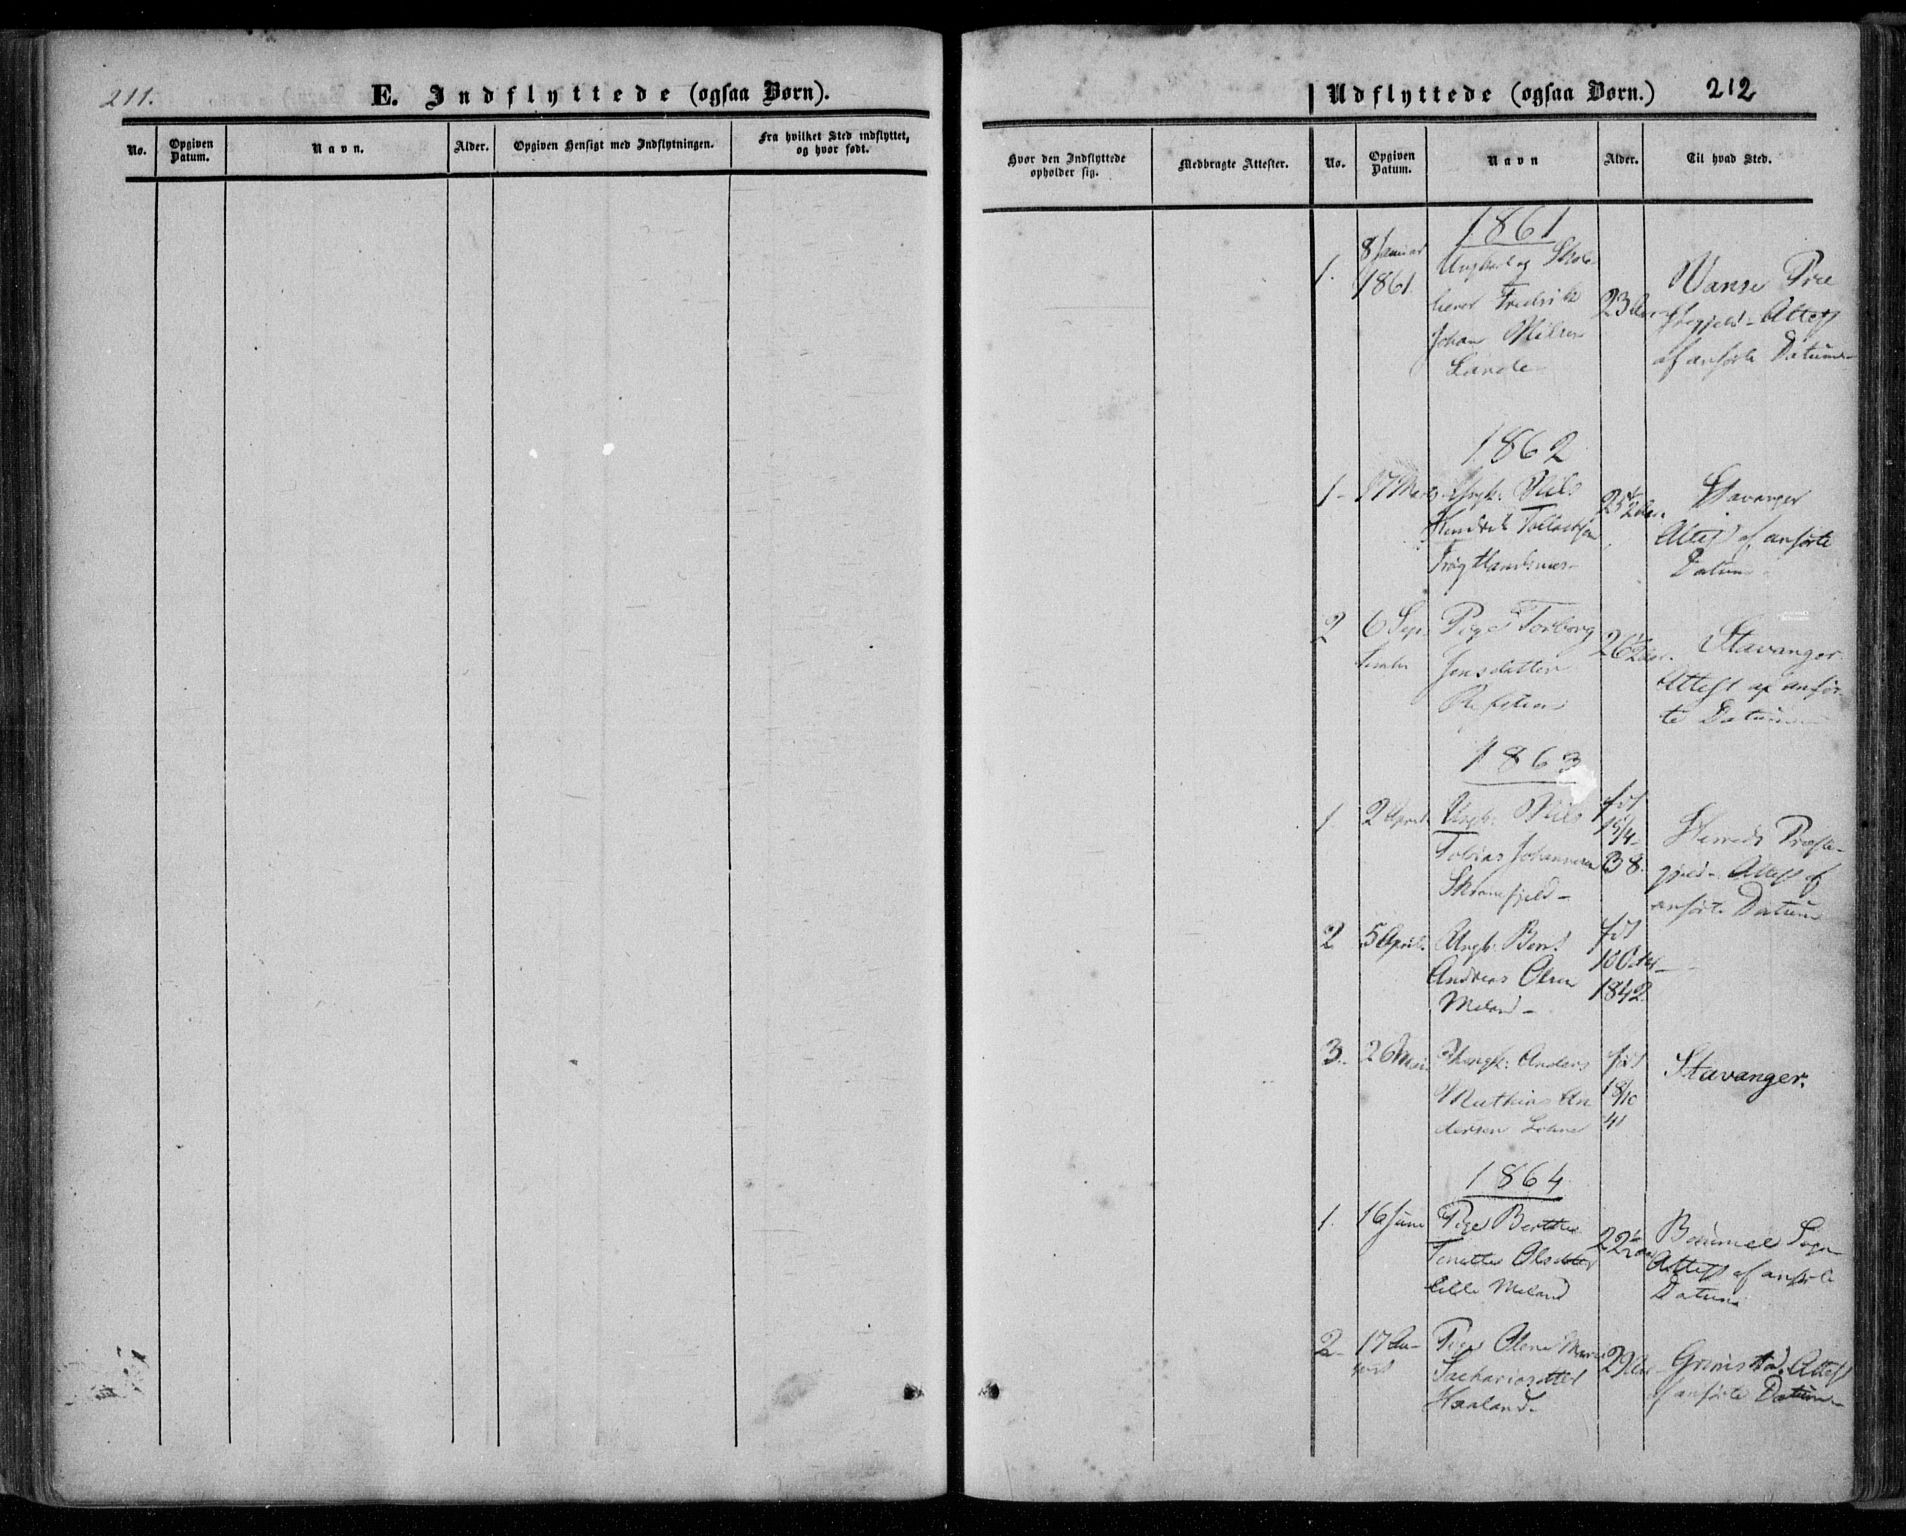 211.
E. Indflyttede (ogsaa Børn).
No.
Opgiven
Datum.
Navn.
Alder.
Opgiven Hensigt med Indflytningen.
Fra hvilket Sted indflyttet,
og hvor født.
Udflyttede (ogsaa Børn.)
212
Hvor den Indflyttede
opholder sig.
Medbragte Attester.
No.
Opgiven
Datum.
Navn
Alder.
Til hvad Sted.
1861
1.
8 Januar
1861
Ungkarl og Skole-
lærer Fredrik
Johan Nilsen
Lande
23 Aar
Vanse Præ
stegjeld - Attest
af anførte Datum
1862
1-
17 Marts
Ungk: Nils
Hendrik Tollachsen
25 1/2 Aar.
Stavanger
Attest af anførte
Datum
2
6 Sep-
tember
Pige Torborg
Jensdatter
Refsteen
26 1/2 Aar.
Stavanger
Attest af anfør-
te Datum
1863
1.
2 April
Ungk: Nils
Tobias Johannesen
fød
15/4-
38.
Herreds Præste-
gjeld - Attest af
anførte Datum
2
5 April.
Ungk: Bent
Andreas Olsen
Meland -
fød
10 Octbr
1842.
3.
26 Mai
Ungk: Anders
Mathias An
dersen
fød
18/10
41
Stavanger.
1864
1.
16 Juni
Pige Berthe
Tenette Olsdatter
Lille Meland
22 1/2 Aar
Bømmel Sogn
Attest af anførte
Datum
2-
17 Au-
gust
Pige Olene Marie
Sachariasdatter
Haaland-
29 Aar
Grimstad. Attest
af anførte Datum-